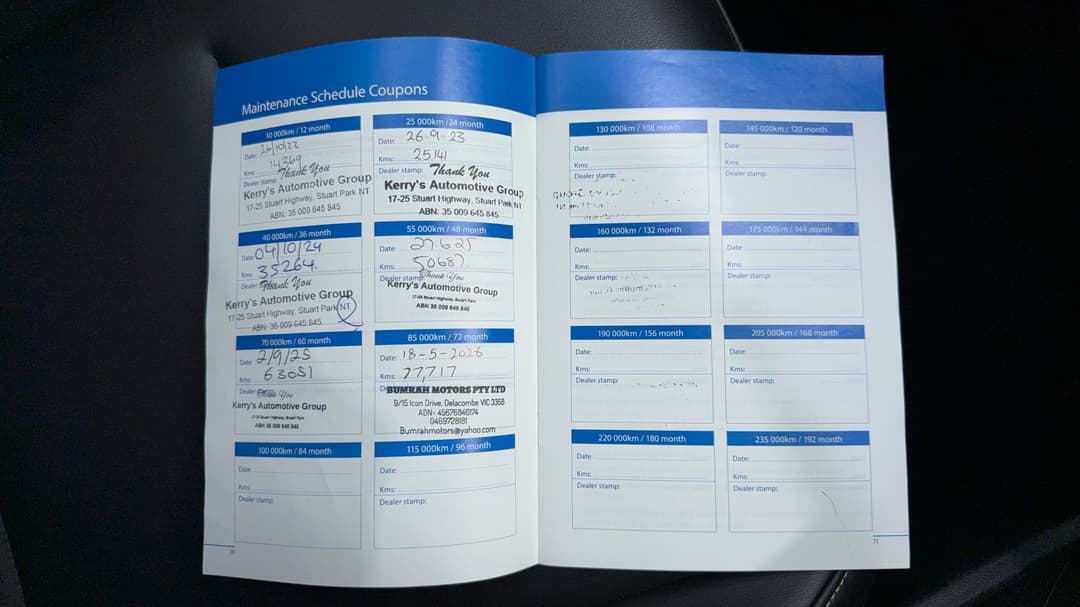 Maintenance Schedule Coupons
10 000km / 12 month
Date: 26/10/22
Kms: 14369
Dealer stamp: Thank You
Kerry's Automotive Group
17-25 Stuart Highway, Stuart Park NT
ABN: 35 009 645 845
25 000km / 24 month
Date: 26-9-23
Kms: 25141
Dealer stamp: Thank You
Kerry's Automotive Group
17-25 Stuart Highway, Stuart Park NT
ABN: 35 009 645 845
40 000km / 36 month
Date: 04/10/24
Kms: 35264.
Dealer Thank You
Kerry's Automotive Group
17-25 Stuart Highway, Stuart Park NT
ABN: 35 009 645 845
55 000km / 48 month
Date: 27.6.25
Kms: 50687
Dealer stamp: Thank You
Kerry's Automotive Group
17-25 Stuart Highway, Stuart Park
ABN 35 009 645 845
70 000km / 60 month
Date: 2/9/25
Kms: 63051
Dealer Thank You
Kerry's Automotive Group
17-25 Stuart Highway, Stuart Park
ABN 35 009 645 845
85 000km / 72 month
Date: 18-5-2026
Kms: 77,717
BUMRAH MOTORS PTY LTD
9/15 Icon Drive, Delacombe VIC 3358
ABN- 45676846174
0469728181
Bumrahmotors@yahoo.com
100 000km / 84 month
Date:
Kms:
Dealer stamp:
115 000km / 96 month
Date:
Kms:
Dealer stamp:
130 000km / 108 month
Date:
Kms:
Dealer stamp:
145 000km / 120 month
Date:
Kms:
Dealer stamp:
160 000km / 132 month
Date:
Kms:
Dealer stamp:
175 000km / 144 month
Date:
Kms:
Dealer stamp:
190 000km / 156 month
Date:
Kms:
Dealer stamp:
205 000km / 168 month
Date:
Kms:
Dealer stamp:
220 000km / 180 month
Date:
Kms:
Dealer stamp:
235 000km / 192 month
Date:
Kms:
Dealer stamp:
11